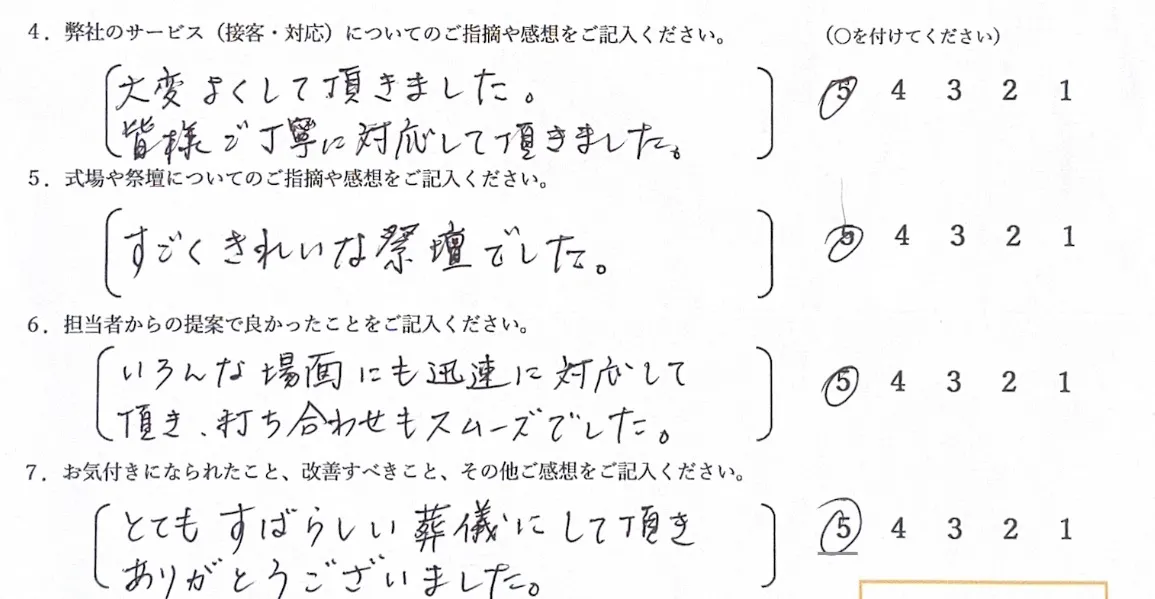 4．弊社のサービス（接客・対応）についてのご指摘や感想をご記入ください。 （○を付けてください）
大変よくして頂きました。 5 4 3 2 1
皆様ご丁寧に対応して頂きました。
5．式場や祭壇についてのご指摘や感想をご記入ください。
すごくきれいな祭壇でした。 5 4 3 2 1
6．担当者からの提案で良かったことをご記入ください。
いろんな場面にも迅速に対応して 5 4 3 2 1
頂き、打ち合わせもスムーズでした。
7．お気付きになられたこと、改善すべきこと、その他ご感想をご記入ください。
とてもすばらしい葬儀にして頂き 5 4 3 2 1
ありがとうございました。